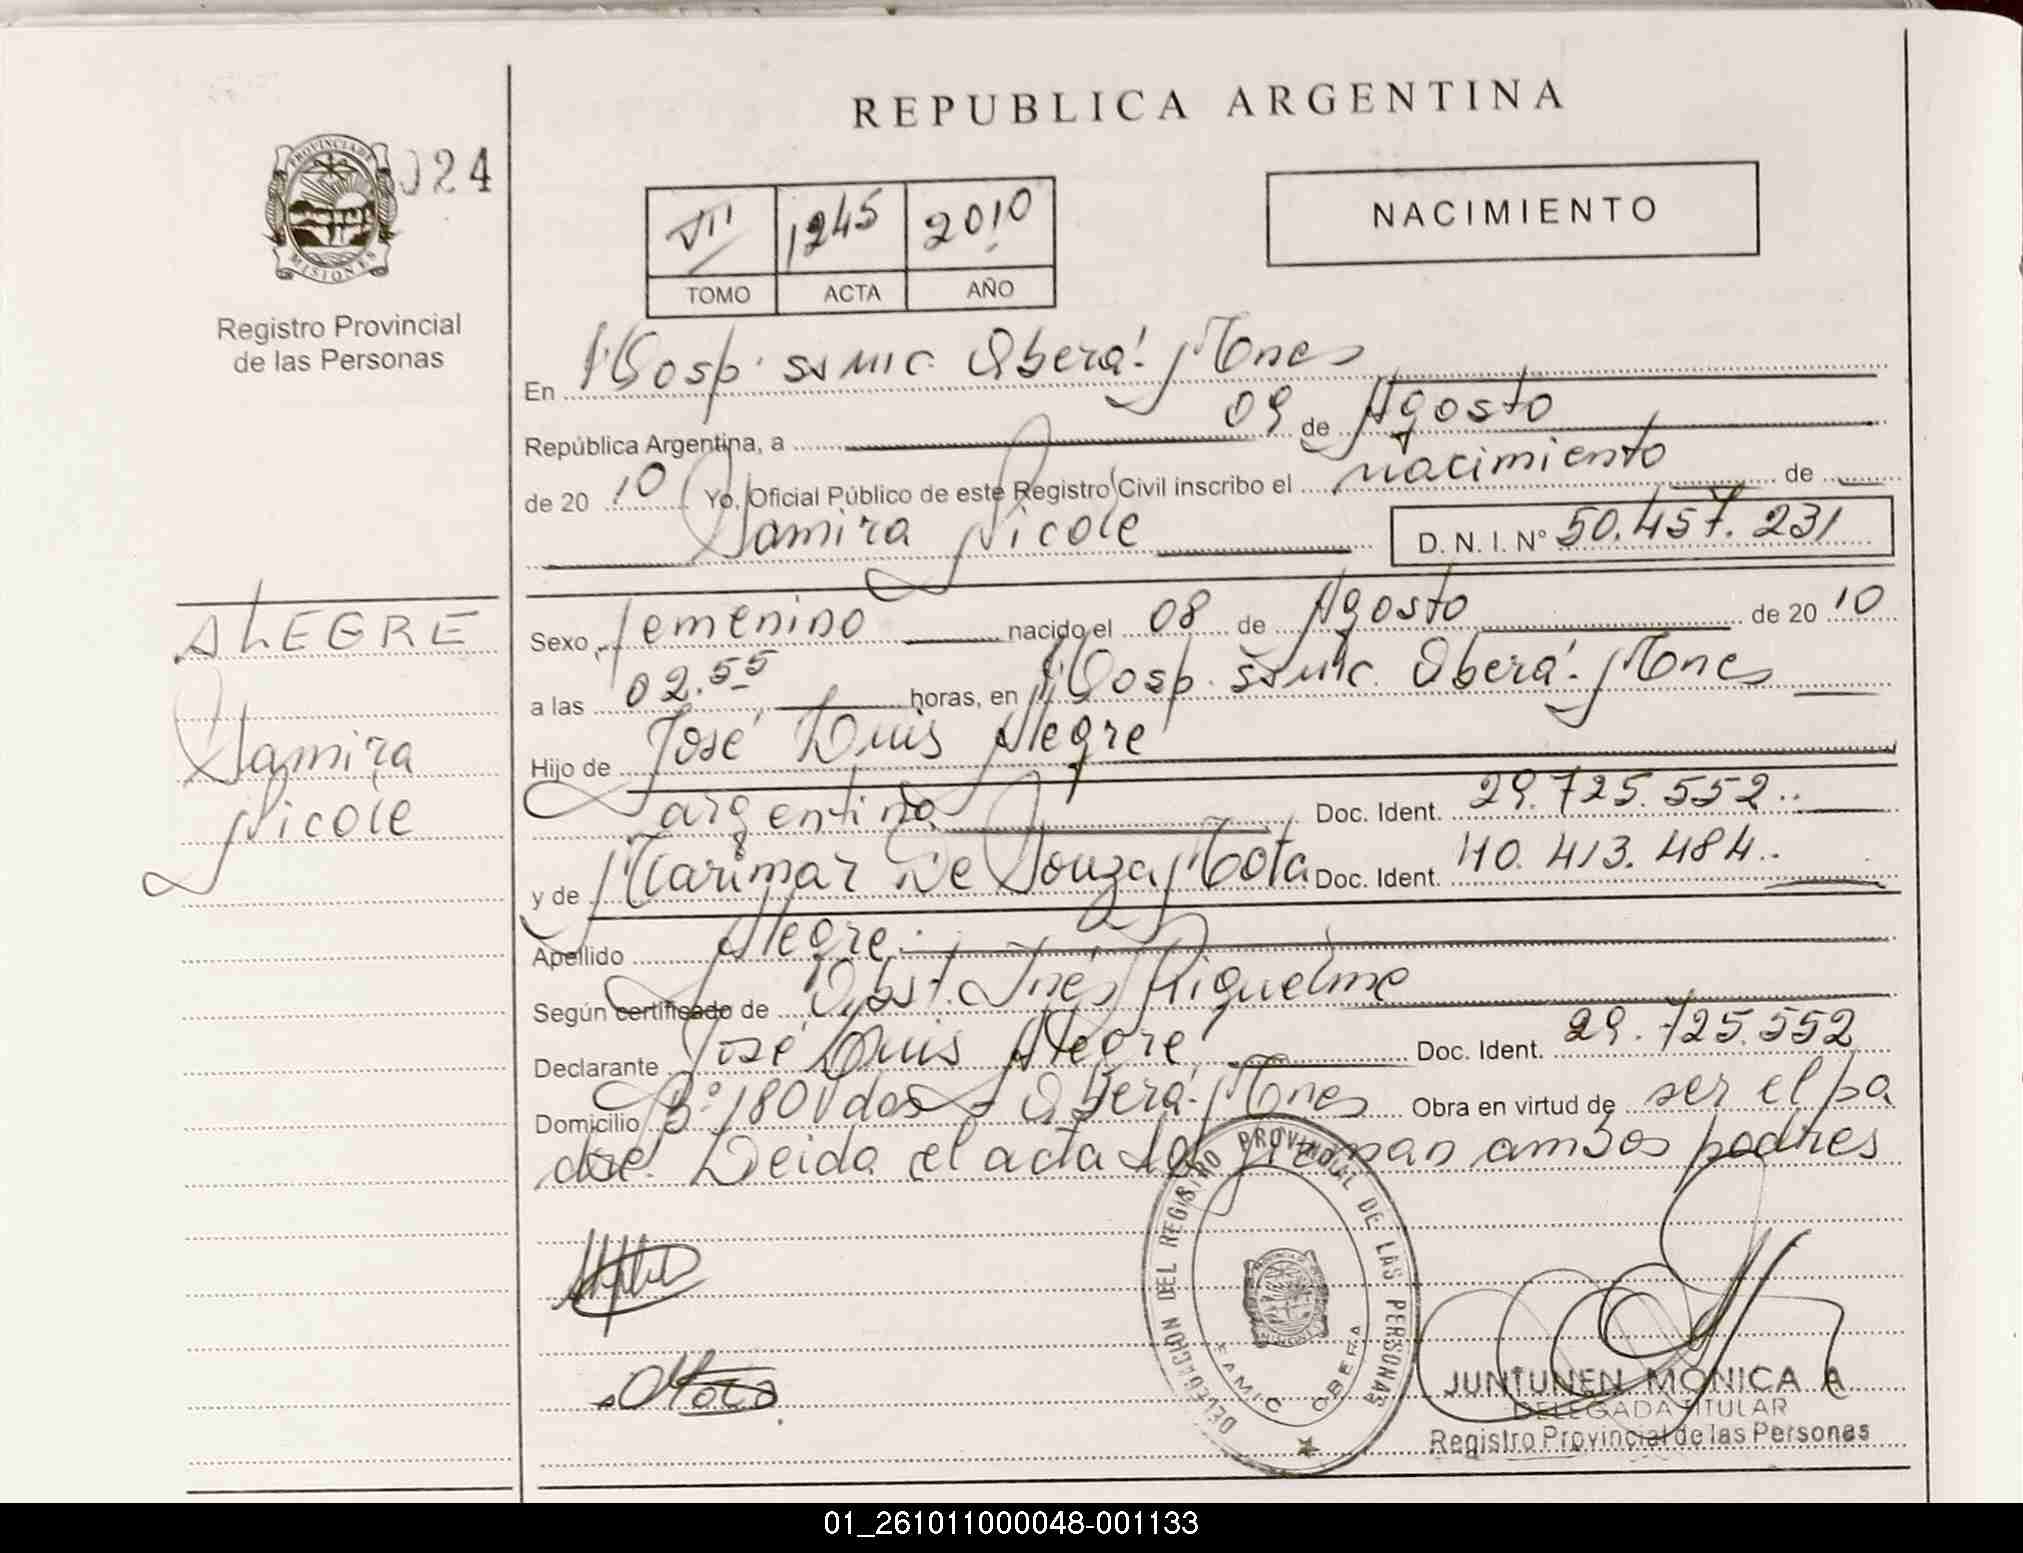 REPUBLICA ARGENTINA
024
PROVINCIA DE
MISIONES
Registro Provincial
de las Personas
VII 1245 2010
TOMO ACTA AÑO
NACIMIENTO
En Hosp. SAMIC. Oberá. Mnes
República Argentina, a 09 de Agosto
de 20 10 Yo, Oficial Público de este Registro Civil inscribo el nacimiento de
Samira Nicole D. N. I. N° 50.457.231
ALEGRE
Samira
Nicole
Sexo femenino nacido el 08 de Agosto de 20 10
a las 02.55 horas, en Hosp. SAMIC. Oberá. Mnes
Hijo de José Luis Alegre
argentino Doc. Ident. 29.725.552..
y de Marimar De Souza Mota Doc. Ident. 40.413.484..
Apellido Alegre.
Según certificado de Obst. Inés Riquelme
Declarante José Luis Alegre Doc. Ident. 29.725.552
Domicilio B° 180 Vdas Oberá. Mnes Obra en virtud de ser el pa
dre. Leida el acta la firman ambos padres
DELEGACION DEL REGISTRO PROVINCIAL DE LAS PERSONAS
SAMIC OBERA
JUNTUNEN MONICA A
DELEGADA TITULAR
Registro Provincial de las Personas
01_261011000048-001133